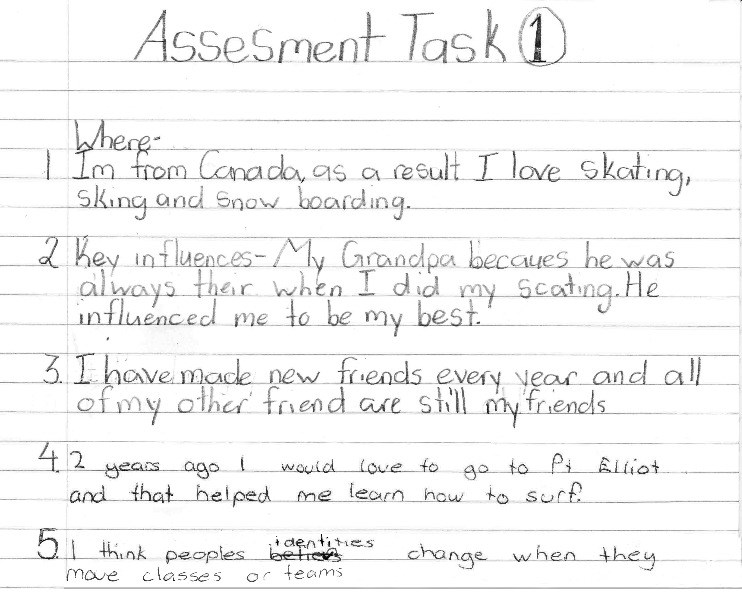 Assesment Task 1
Where-
1 Im from Canada, as a result I love skating,
sking and snow boarding.
2 Key influences- My Grandpa becaues he was
always their when I did my scating. He
influenced me to be my best.
3. I have made new friends every year and all
of my other friend are still my friends
4. 2 years ago I would love to go to Pt Elliot
and that helped me learn how to surf.
identities
5. I think peoples change when they
move classes or teams